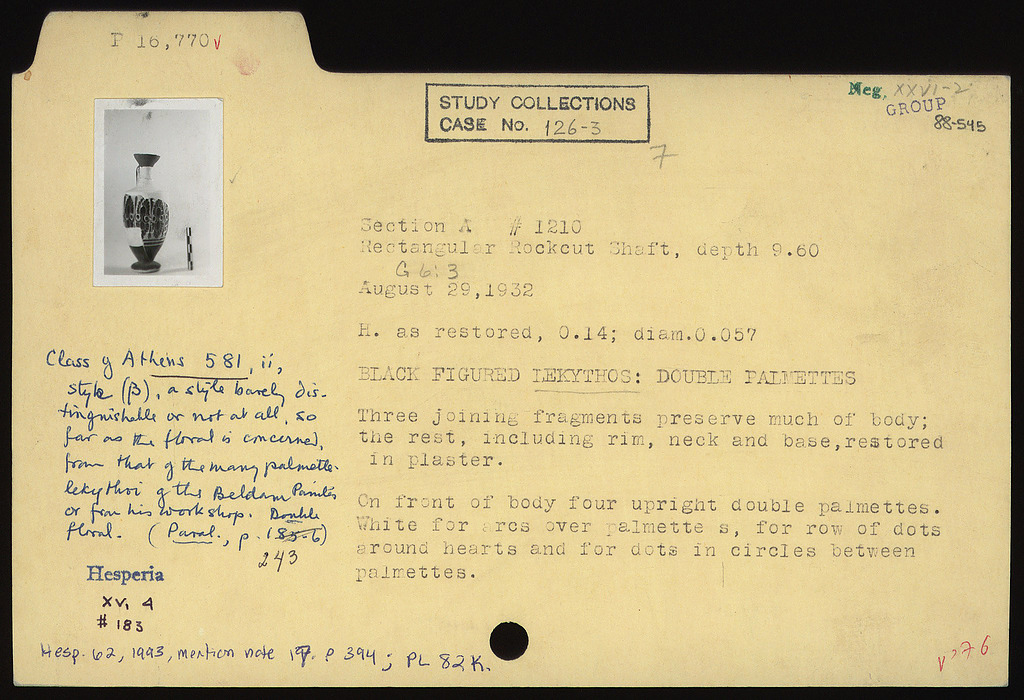 P 16,770 √
STUDY COLLECTIONS
CASE No. 126-3
Neg. XXVI-2
GROUP
88-545
7
Section A # 1210
Rectangular Rockcut Shaft, depth 9.60
G 6:3
August 29,1932
H. as restored, 0.14; diam.0.057
BLACK FIGURED LEKYTHOS: DOUBLE PALMETTES
Three joining fragments preserve much of body;
the rest, including rim, neck and base,restored
in plaster.
On front of body four upright double palmettes.
White for arcs over palmette s, for row of dots
around hearts and for dots in circles between
palmettes.
Class of Athens 581, ii,
style (β), a style barely dis-
tinguishable or not at all, so
far as the floral is concerned,
from that of the many palmette-
lekythoi of the Beldam Painter
or from his workshop. Double
floral. (Paral., p. 185-6)
243
Hesperia
XV, 4
# 183
Hesp. 62, 1993, mention note 17. p 394; PL 82K.
√ 276